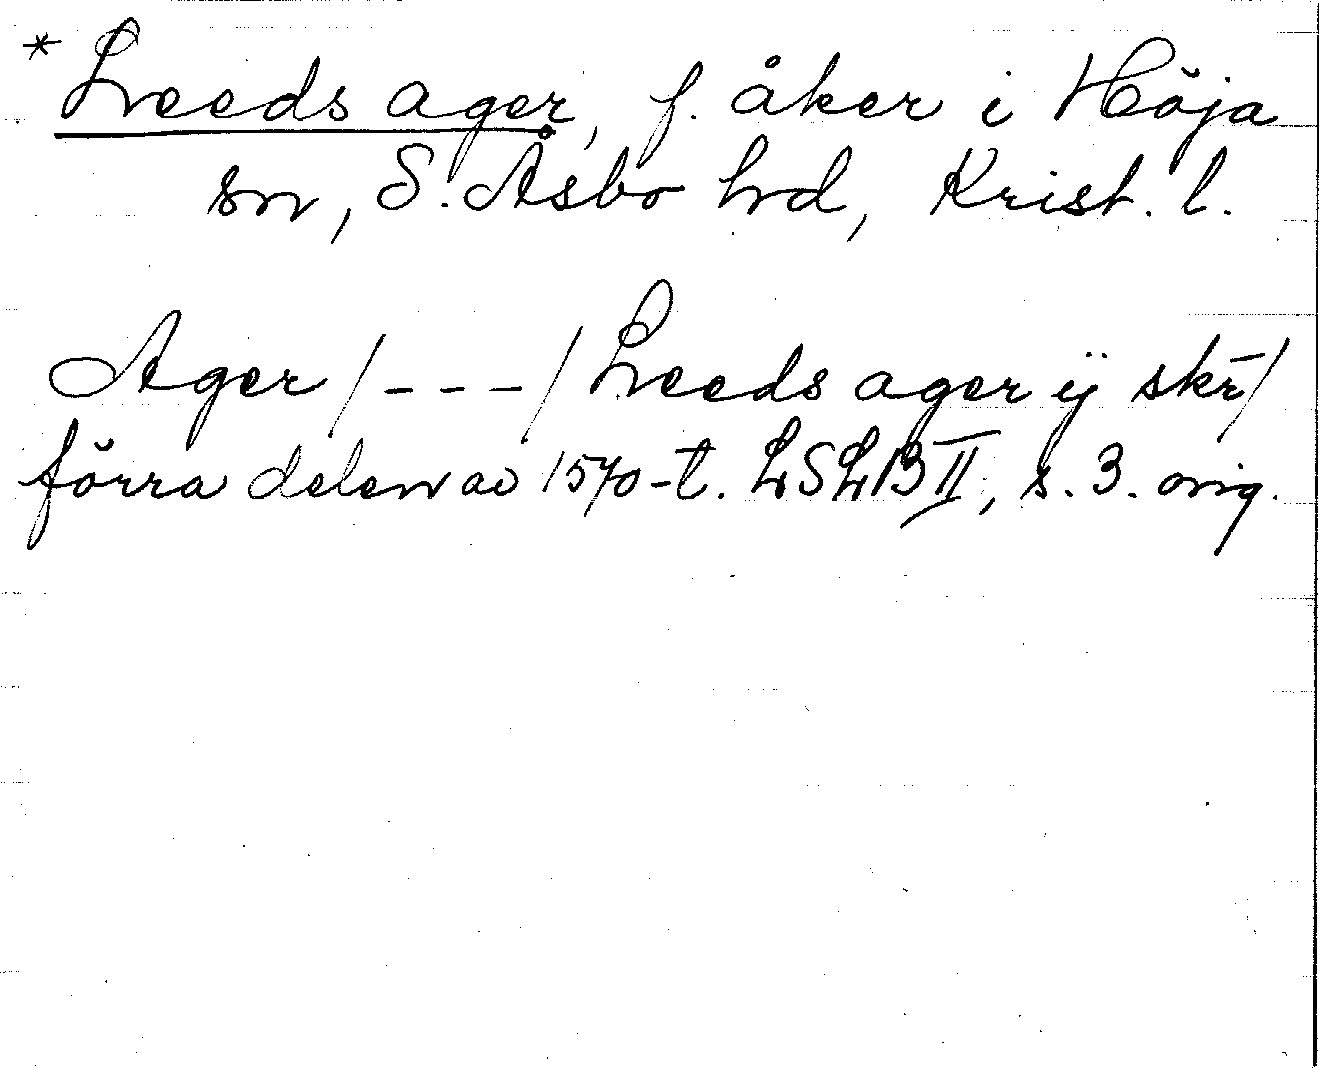 * Leeds ager, f. åker i Höja
sn, S. Åsbo hd, Krist. l.
Ager /---/ Leeds ager ij skr̄/
förra delen av 1570-t. LSLB II, s. 3. orig.